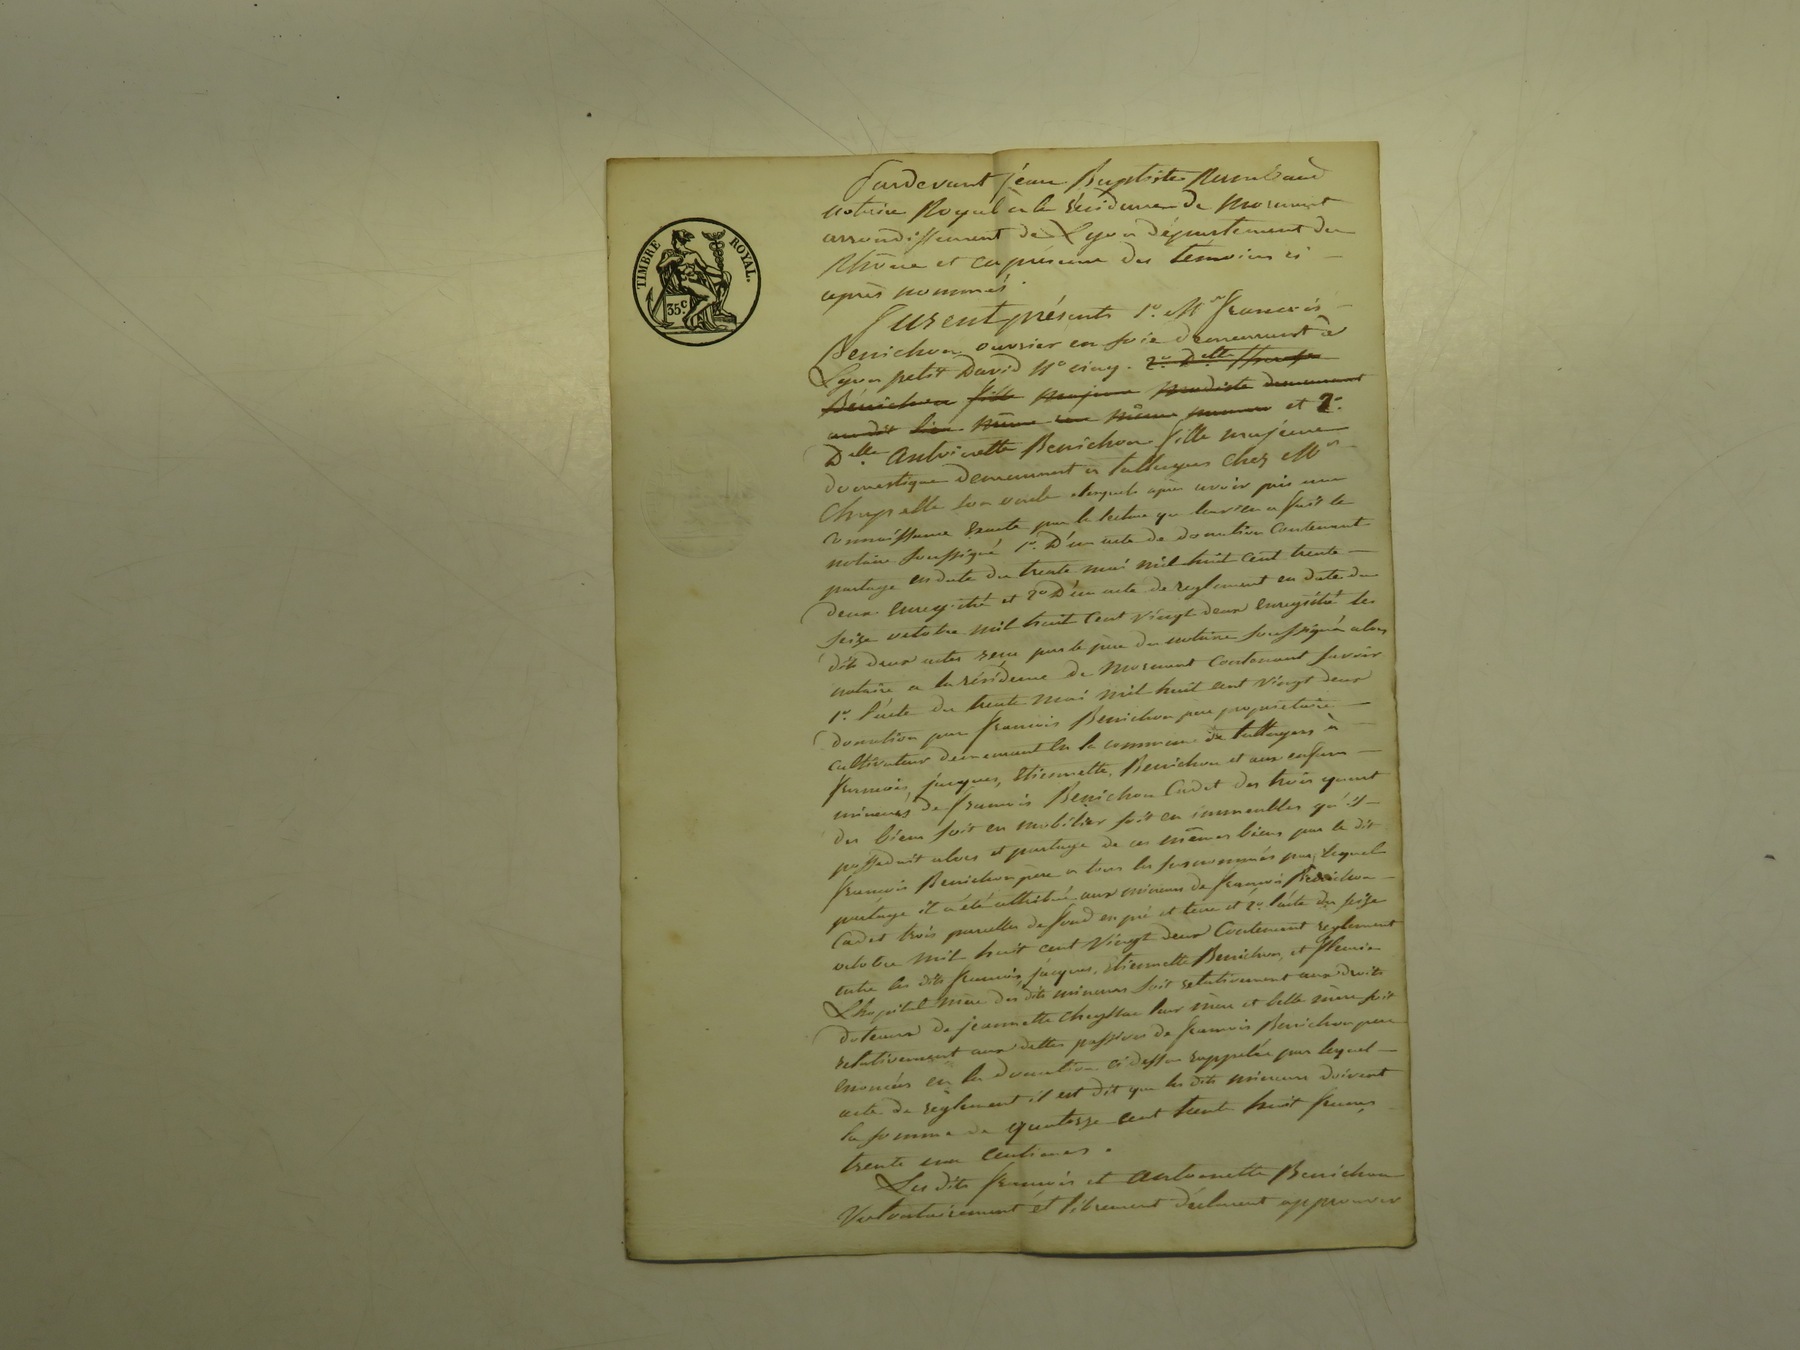 TIMBRE ROYAL.
35c
Pardevant jean Baptiste Rambaud
notaire Royal à la résidence de Mornant
arrondissement de Lyon département du
Rhône et en présence des témoins ci
après nommés.
furent présents 1o. Mr. francois
Benichon ouvrier en soie demeurant à
Lyon petit David No cinq. 2o. Dlle
Bénichon fille majeure modiste demeurant
au dit lieu même rue même et 2o.
Dlle Antoinette Benichon fille majeure
domestique demeurant à talluyers chez Mr.
son oncle lesquels après avoir pris une
connaissance exacte par la lecture que leur en a fait le
notaire soussigné 1o. D'un acte de donation contenant
partage en date du trente mai mil huit cent trente
deux enregistré et 2o D'un acte de reglement en date du
seize octobre mil huit cent vingt deux enregistré les
dits deux actes recu par le père du notaire soussigné alors
notaire a la résidence de Mornant contenant savoir
1o. l'acte du trente mai mil huit cent vingt deux
donation par francois Benichon père propriétaire
cultivateur demeurant en la commune de talluyers à
francois, jacques, Etiennette, Benichon et aux enfans
mineurs de francois Benichon Cadet des trois quart
des biens soit en mobilier soit en immeubles qu'il
possedait alors et partage de ces mêmes biens par le dit
francois Benichon père a tous les susnommés par lequel
partage il a été attribué aux mineurs de francois Benichon
Cadet trois parcelles de fond en pré et terre et 2o. l'acte du seize
octobre mil huit cent vingt deux Contenant reglement
entre les dits francois, jacques, Etiennette Benichon, et
Lhopital mère des dits mineurs soit relativement aux droits
dotaux de jeannette leur mère et belle mère soit
relativement aux dettes passives de francois Benichon père
enoncées en la donation ci dessus rappelée par lequel
acte de règlement il est dit que les dits mineurs doivent
la somme de quatorze cent trente huit francs
trente un centimes.
Les dits francois et antoinette Benichon
Volontairement et librement déclarent approuver